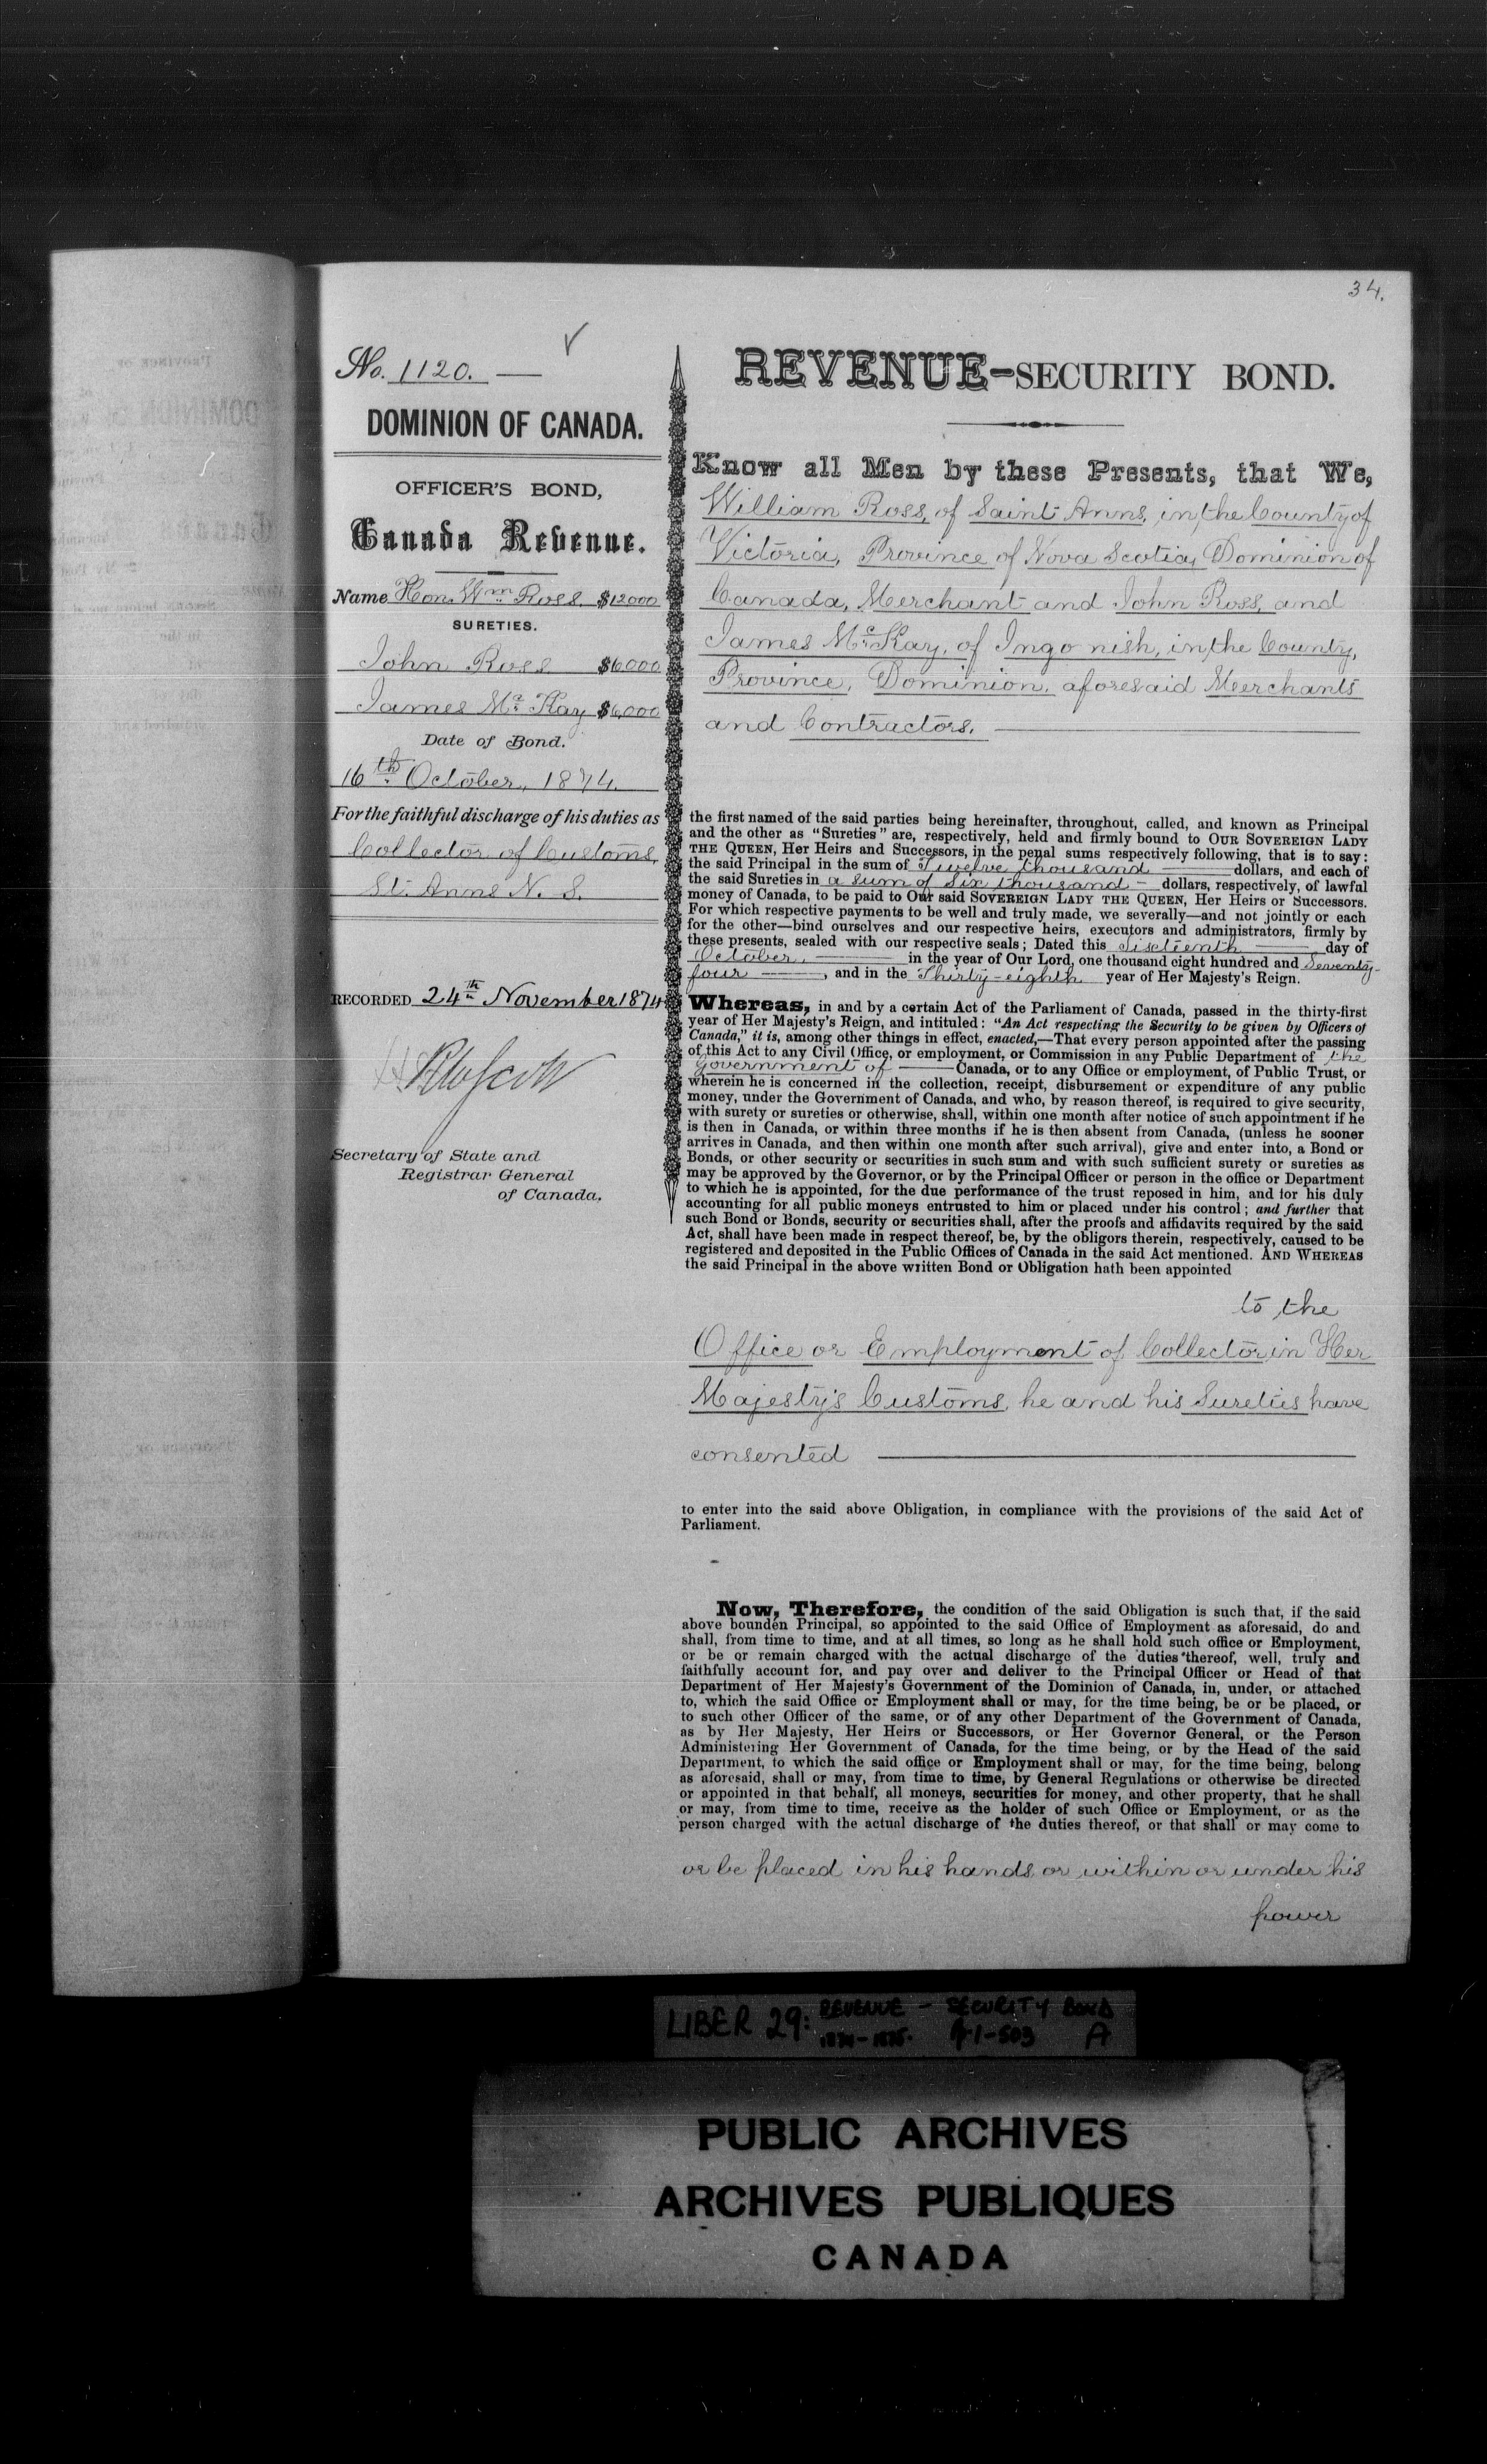 34.
No. 1120. —
DOMINION OF CANADA.
OFFICER'S BOND,
Canada Revenue.
Name Hon. Wm Ross $12000
SURETIES.
John Ross $6,000
James Mc Kay $6,000
Date of Bond.
16th October, 1874.
For the faithful discharge of his duties as
Collector of Customs,
St. Anns N. S.
RECORDED 24th November 1874
Secretary of State and
Registrar General
of Canada,
REVENUE-SECURITY BOND.
Know all Men by these Presents, that We,
William Ross, of Saint Anns, in the County of
Victoria, Province of Nova Scotia, Dominion of
Canada, Merchant and John Ross, and
James Mc Kay, of Ingonish, in the County,
Province, Dominion, aforesaid Merchants
and Contractors,
the first named of the said parties being hereinafter, throughout, called, and known as Principal
and the other as "Sureties" are, respectively, held and firmly bound to OUR SOVEREIGN LADY
THE QUEEN, Her Heirs and Successors, in the penal sums respectively following, that is to say:
the said Principal in the sum of Twelve thousand — dollars, and each of
the said Sureties in a sum of Six thousand — dollars, respectively, of lawful
money of Canada, to be paid to Our said SOVEREIGN LADY THE QUEEN, Her Heirs or Successors.
For which respective payments to be well and truly made, we severally—and not jointly or each
for the other—bind ourselves and our respective heirs, executors and administrators, firmly by
these presents, sealed with our respective seals; Dated this Sixteenth — day of
October, — in the year of Our Lord, one thousand eight hundred and Seventy-
four —, and in the Thirty-eighth year of Her Majesty's Reign.
Whereas, in and by a certain Act of the Parliament of Canada, passed in the thirty-first
year of Her Majesty's Reign, and intituled: "An Act respecting the Security to be given by Officers of
Canada," it is, among other things in effect, enacted,—That every person appointed after the passing
of this Act to any Civil Office, or employment, or Commission in any Public Department of the
government of — Canada, or to any Office or employment, of Public Trust, or
wherein he is concerned in the collection, receipt, disbursement or expenditure of any public
money, under the Government of Canada, and who, by reason thereof, is required to give security,
with surety or sureties or otherwise, shall, within one month after notice of such appointment if he
is then in Canada, or within three months if he is then absent from Canada, (unless he sooner
arrives in Canada, and then within one month after such arrival), give and enter into, a Bond or
Bonds, or other security or securities in such sum and with such sufficient surety or sureties as
may be approved by the Governor, or by the Principal Officer or person in the office or Department
to which he is appointed, for the due performance of the trust reposed in him, and for his duly
accounting for all public moneys entrusted to him or placed under his control; and further that
such Bond or Bonds, security or securities shall, after the proofs and affidavits required by the said
Act, shall have been made in respect thereof, be, by the obligors therein, respectively, caused to be
registered and deposited in the Public Offices of Canada in the said Act mentioned. AND WHEREAS
the said Principal in the above written Bond or Obligation hath been appointed
to the
Office or Employment of Collector in Her
Majesty's Customs, he and his Sureties have
consented
to enter into the said above Obligation, in compliance with the provisions of the said Act of
Parliament.
Now, Therefore, the condition of the said Obligation is such that, if the said
above bounden Principal, so appointed to the said Office of Employment as aforesaid, do and
shall, from time to time, and at all times, so long as he shall hold such office or Employment,
or be or remain charged with the actual discharge of the duties thereof, well, truly and
faithfully account for, and pay over and deliver to the Principal Officer or Head of that
Department of Her Majesty's Government of the Dominion of Canada, in, under, or attached
to, which the said Office or Employment shall or may, for the time being, be or be placed, or
to such other Officer of the same, or of any other Department of the Government of Canada,
as by Her Majesty, Her Heirs or Successors, or Her Governor General, or the Person
Administering Her Government of Canada, for the time being, or by the Head of the said
Department, to which the said office or Employment shall or may, for the time being, belong
as aforesaid, shall or may, from time to time, by General Regulations or otherwise be directed
or appointed in that behalf, all moneys, securities for money, and other property, that he shall
or may, from time to time, receive as the holder of such Office or Employment, or as the
person charged with the actual discharge of the duties thereof, or that shall or may come to
or be placed in his hands or within or under his
power
LIBER 29: REVENUE - SECURITY BOND
1874-1875. A
PUBLIC ARCHIVES
ARCHIVES PUBLIQUES
CANADA